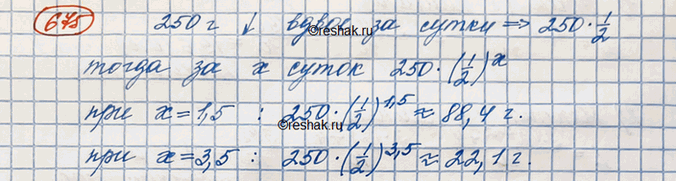 675 250 г ↓ вдвое за сутки ⇒ 250·1/2
©reshak.ru
тогда за x суток 250·(1/2)^x
при x=1,5 : 250·(1/2)^1,5 ≈ 88,4 г.
©reshak.ru
при x=3,5 : 250·(1/2)^3,5 ≈ 22,1 г.